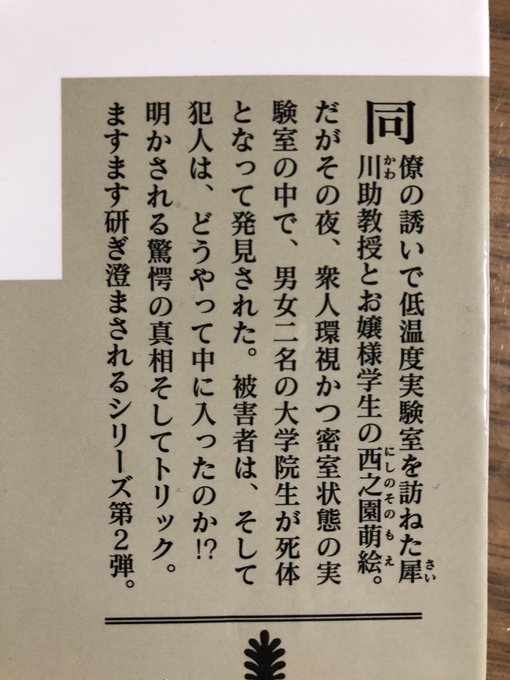 同僚の誘いで低温度実験室を訪ねた犀
川助教授とお嬢様学生の西之園萌絵。
だがその夜、衆人環視かつ密室状態の実
験室の中で、男女二名の大学院生が死体
となって発見された。被害者は、そして
犯人は、どうやって中に入ったのか!?
明かされる驚愕の真相そしてトリック。
ますます研ぎ澄まされるシリーズ第2弾。